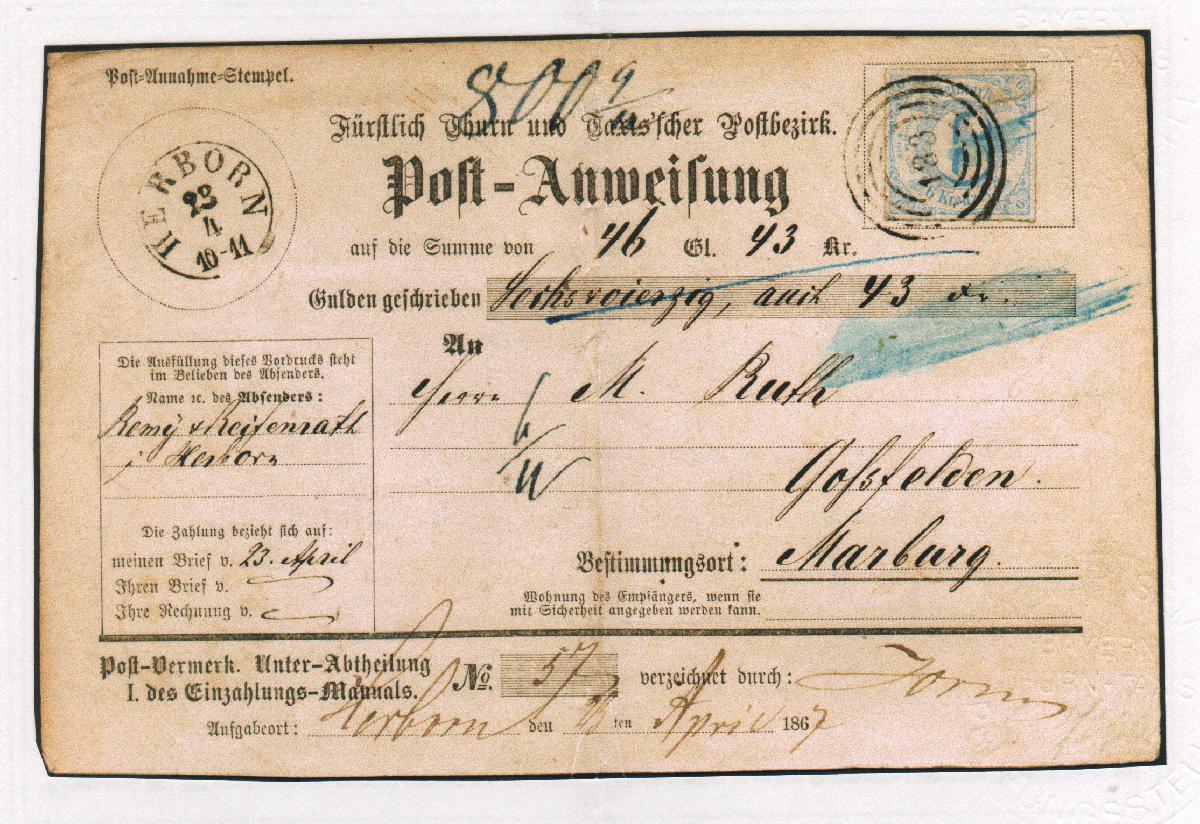 Post-Annahme-Stempel.
800 9/
Fürstlich Thurn und Taxis'scher Postbezirk.
Post-Anweisung
auf die Summe von 46 Gl. 43 Kr.
Gulden geschrieben Sechsvoierzig, auch 43 Kr.
HERBORN
23
4
10-11
183
6
6 Kreuz
An
Herrn M. Ruth
Goßfelden.
Bestimmungsort: Marburg.
Wohnung des Empfängers, wenn sie
mit Sicherheit angegeben werden kann.
Die Ausfüllung dieses Vordrucks steht
im Belieben des Absenders.
Name ꝛc. des Absenders:
Remy & Reifenrath
j Herborn
Die Zahlung bezieht sich auf:
meinen Brief v. 23. April
Ihren Brief v.
Ihre Rechnung v.
Post-Vermerk. Unter-Abtheilung
I. des Einzahlungs-Manuals.
No. 57 verzeichnet durch:
Aufgabeort: Herborn den 23 ten April 1867